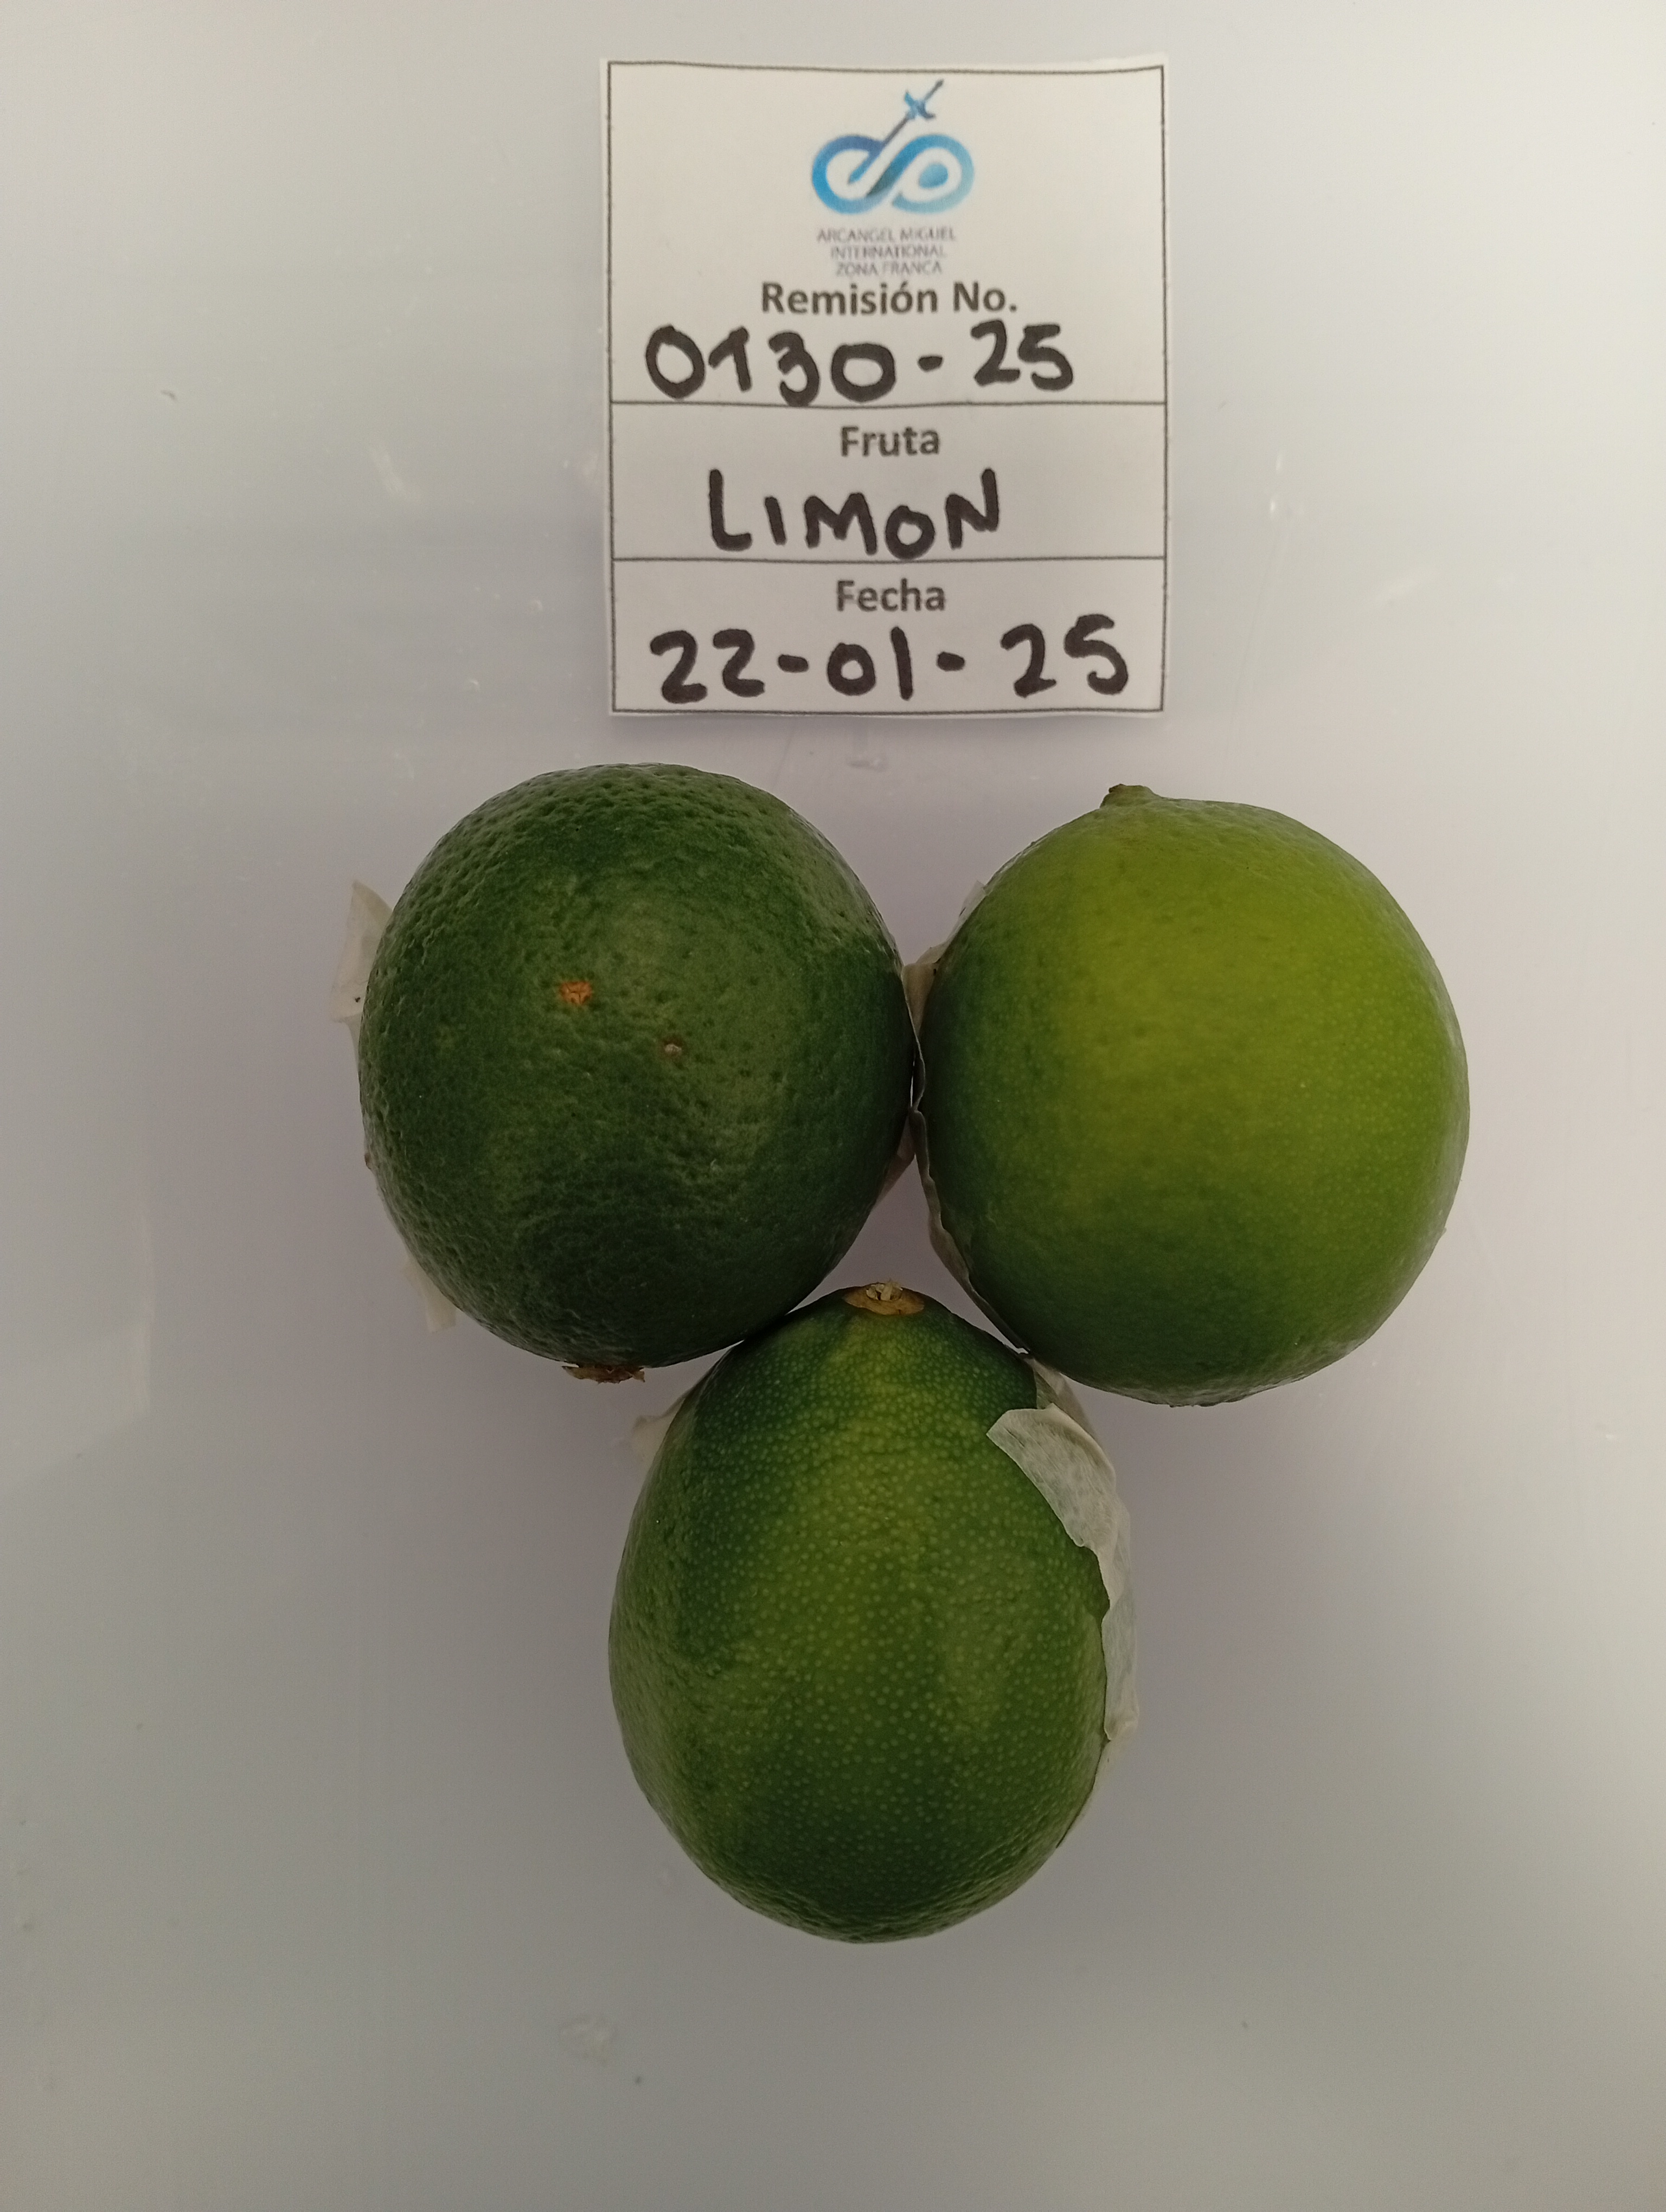 ARCANGEL MIGUEL
INTERNATIONAL
ZONA FRANCA
Remisión No.
0130-25
Fruta
LIMON
Fecha
22-01-25